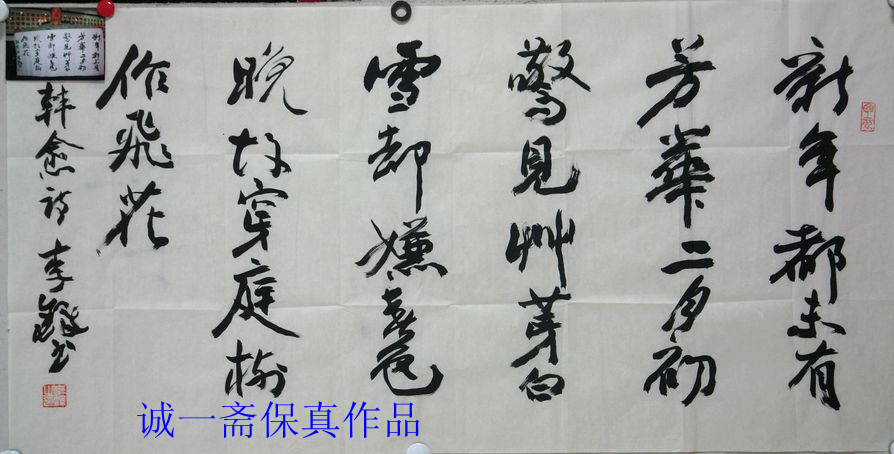 新年都未有
芳華二月初
驚見艸芽白
雪却嫌春色
晚故穿庭樹
作飛花
韩愈诗 李书
诚一斋保真作品